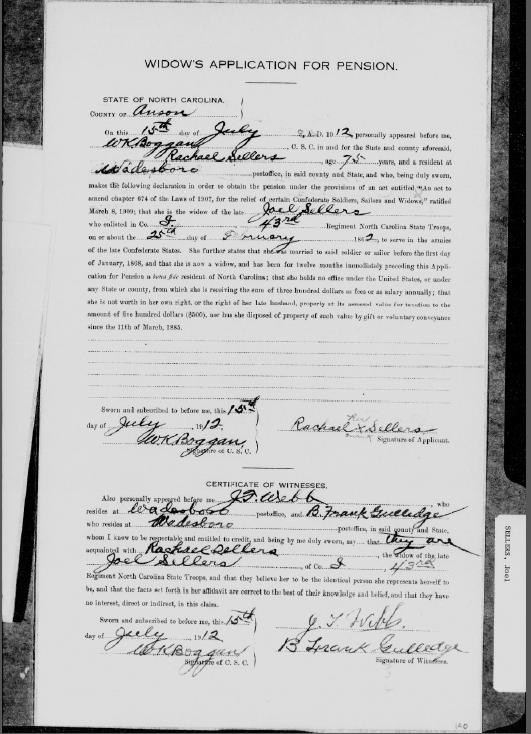 WIDOW'S APPLICATION FOR PENSION.
STATE OF NORTH CAROLINA,
COUNTY OF Anson
On this 15th day of July, A. D. 1912 personally appeared before me,
W.K. Boggan, C. S. C. in and for the State and county aforesaid,
Rachael Sellers, age 75 years, and a resident at
Wadesboro postoffice, in said county and State, and who, being duly sworn,
makes the following declaration in order to obtain the pension under the provisions of an act entitled "An act to
amend chapter 674 of the Laws of 1907, for the relief of certain Confederate Soldiers, Sailors and Widows," ratified
March 8, 1909; that she is the widow of the late Joel Sellers
who enlisted in Co. 43rd Regiment North Carolina State Troops,
on or about the 25th day of 1862, to serve in the armies
of the late Confederate States. She further states that she was married to said soldier or sailor before the first day
of January, 1868, and that she is now a widow, and has been for twelve months immediately preceding this Appli-
cation for Pension a bona fide resident of North Carolina; that she holds no office under the United States, or under
any State or county, from which she is receiving the sum of three hundred dollars as fees or as salary annually; that
she is not worth in her own right, or the right of her late husband, property at its assessed value for taxation to the
amount of five hundred dollars ($500), nor has she disposed of property of such value by gift or voluntary conveyance
since the 11th of March, 1885.
Sworn and subscribed to before me, this 15th
day of July, 1912.
W.K. Boggan
Signature of C. S. C.
her
Rachael x Sellers
mark
Signature of Applicant.
CERTIFICATE OF WITNESSES.
Also personally appeared before me J.T. Webb, who
resides at Wadesboro postoffice, and B. Frank Gulledge
who resides at Wadesboro postoffice, in said county and State,
whom I know to be respectable and entitled to credit, and being by me duly sworn, say that they are
acquainted with Rachael Sellers, the widow of the late
Joel Sellers, of Co. 43rd
Regiment North Carolina State Troops, and that they believe her to be the identical person she represents herself to
be, and that the facts set forth in her affidavit are correct to the best of their knowledge and belief, and that they have
no interest, direct or indirect, in this claim.
Sworn and subscribed to before me, this 15th
day of July 1912
W.K. Boggan
Signature of C. S. C.
J. T. Webb.
B Frank Gulledge
Signature of Witnesses.
SELLERS, Joel